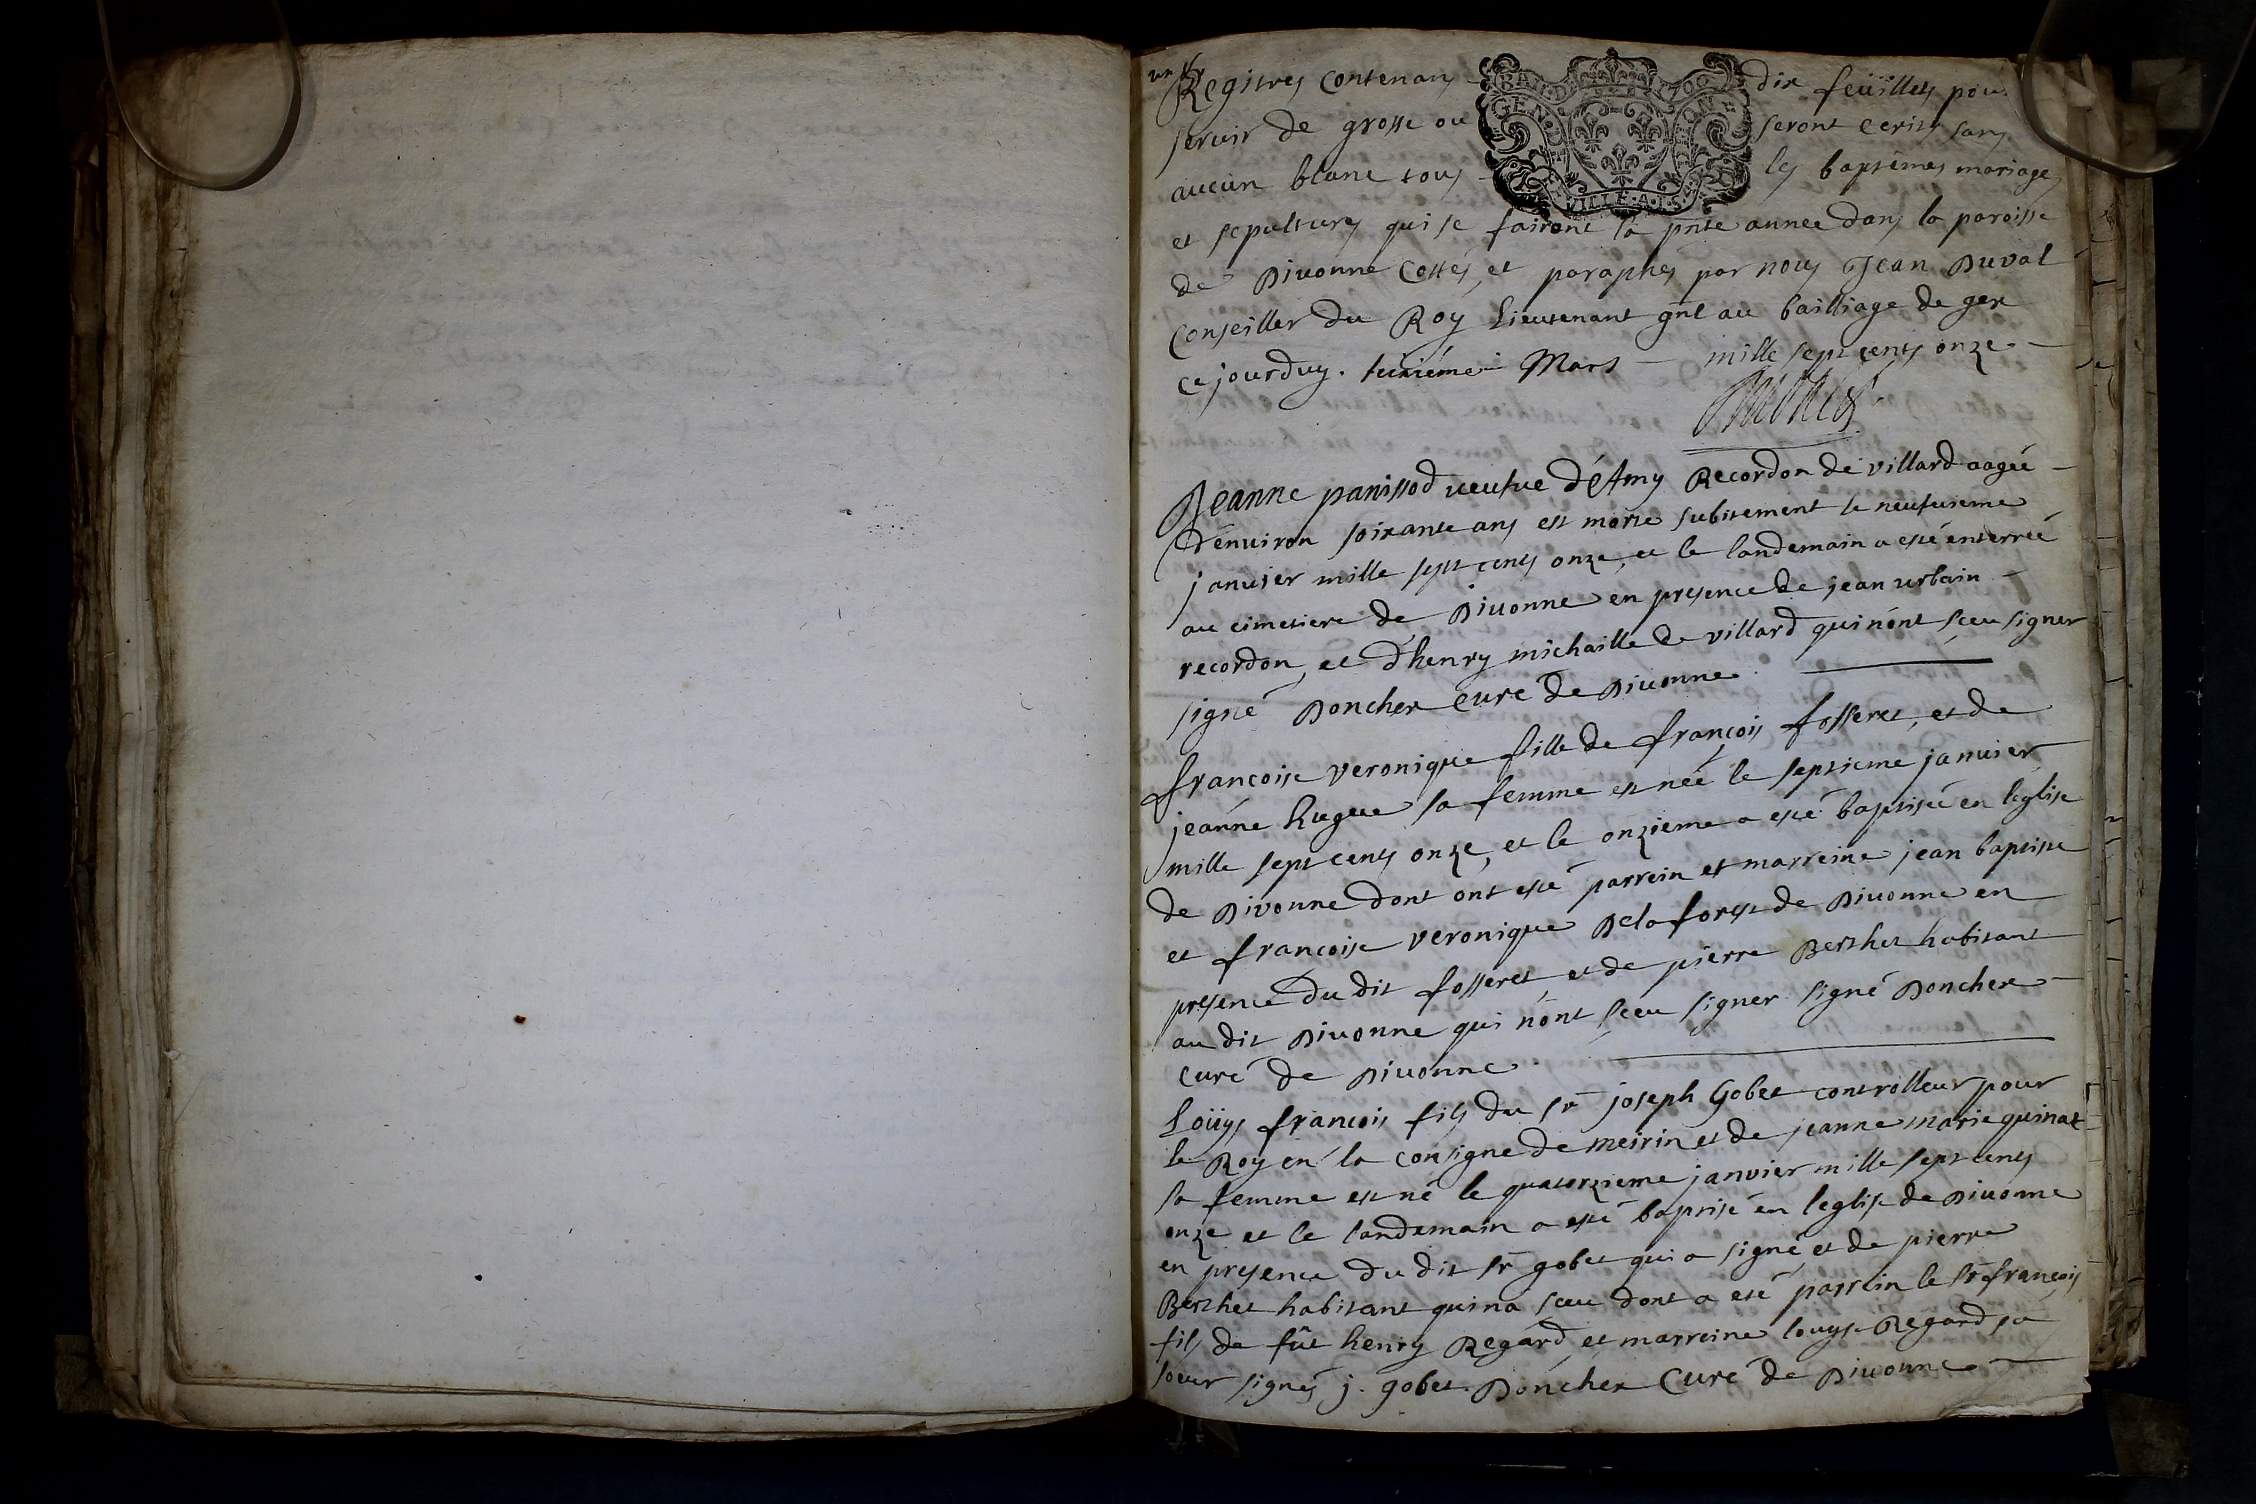 un
Registres contenans dix feüillets pour
seruir de grosse ou seront ecrits sans
aucun blanc tous les baptêmes mariages
et sepultures qui se fairont la pnte année dans la paroisse
de Diuonne cottés, et paraphes par nous Jean Duval
Conseiller du Roy Lieutenant gnl au bailliage de gex
ce jourduy. Mars mille sept cents onze
Jeanne panissod ueufue d'Amy Recordon de villard aagée
d'enuiron soixante ans est morte subitement le neufuieme
januier mille sept cents onze, et le landemain a esté enterrée
au cimetiere de Diuonne en presence de jean urbain
recordon, et d'henry michaille de villard qui n'ont sçeu signer
signé Doncher curé de Diuonne.
francoise veronique fille de françois fosseret, et de
jeanne hugue sa femme est née le septieme januier
mille sept cents onze, et le onzieme a esté baptisée en leglise
de Divonne dont ont esté parrein et marreine jean baptiste
et francoise veronique Delaforest de Diuonne en
presence du dit fosseret, et de pierre Berthet habitant
au dit Diuonne qui n'ont sçeu signer signé Doncher
curé de Diuonne.
Loüys francois fils du sr joseph Gobet controlleur pour
le Roy en la consigne de meirin et de jeanne marie quinat
sa femme est né le quatorzieme janvier mille sept cents
onze et le landemain a esté baptisé en leglise de Diuonne
en presence du dit sr gobet qui a signé, et de pierre
Berthet habitant qui na sceu dont a esté parrein le sr françois
fils de fût henry Regard, et marreine louyse Regard sa
soeur signés j. gobet. Doncher Curé de Diuonne
BAU. D 1700
GEN. DE TION
VILLE. A. I. S. S.